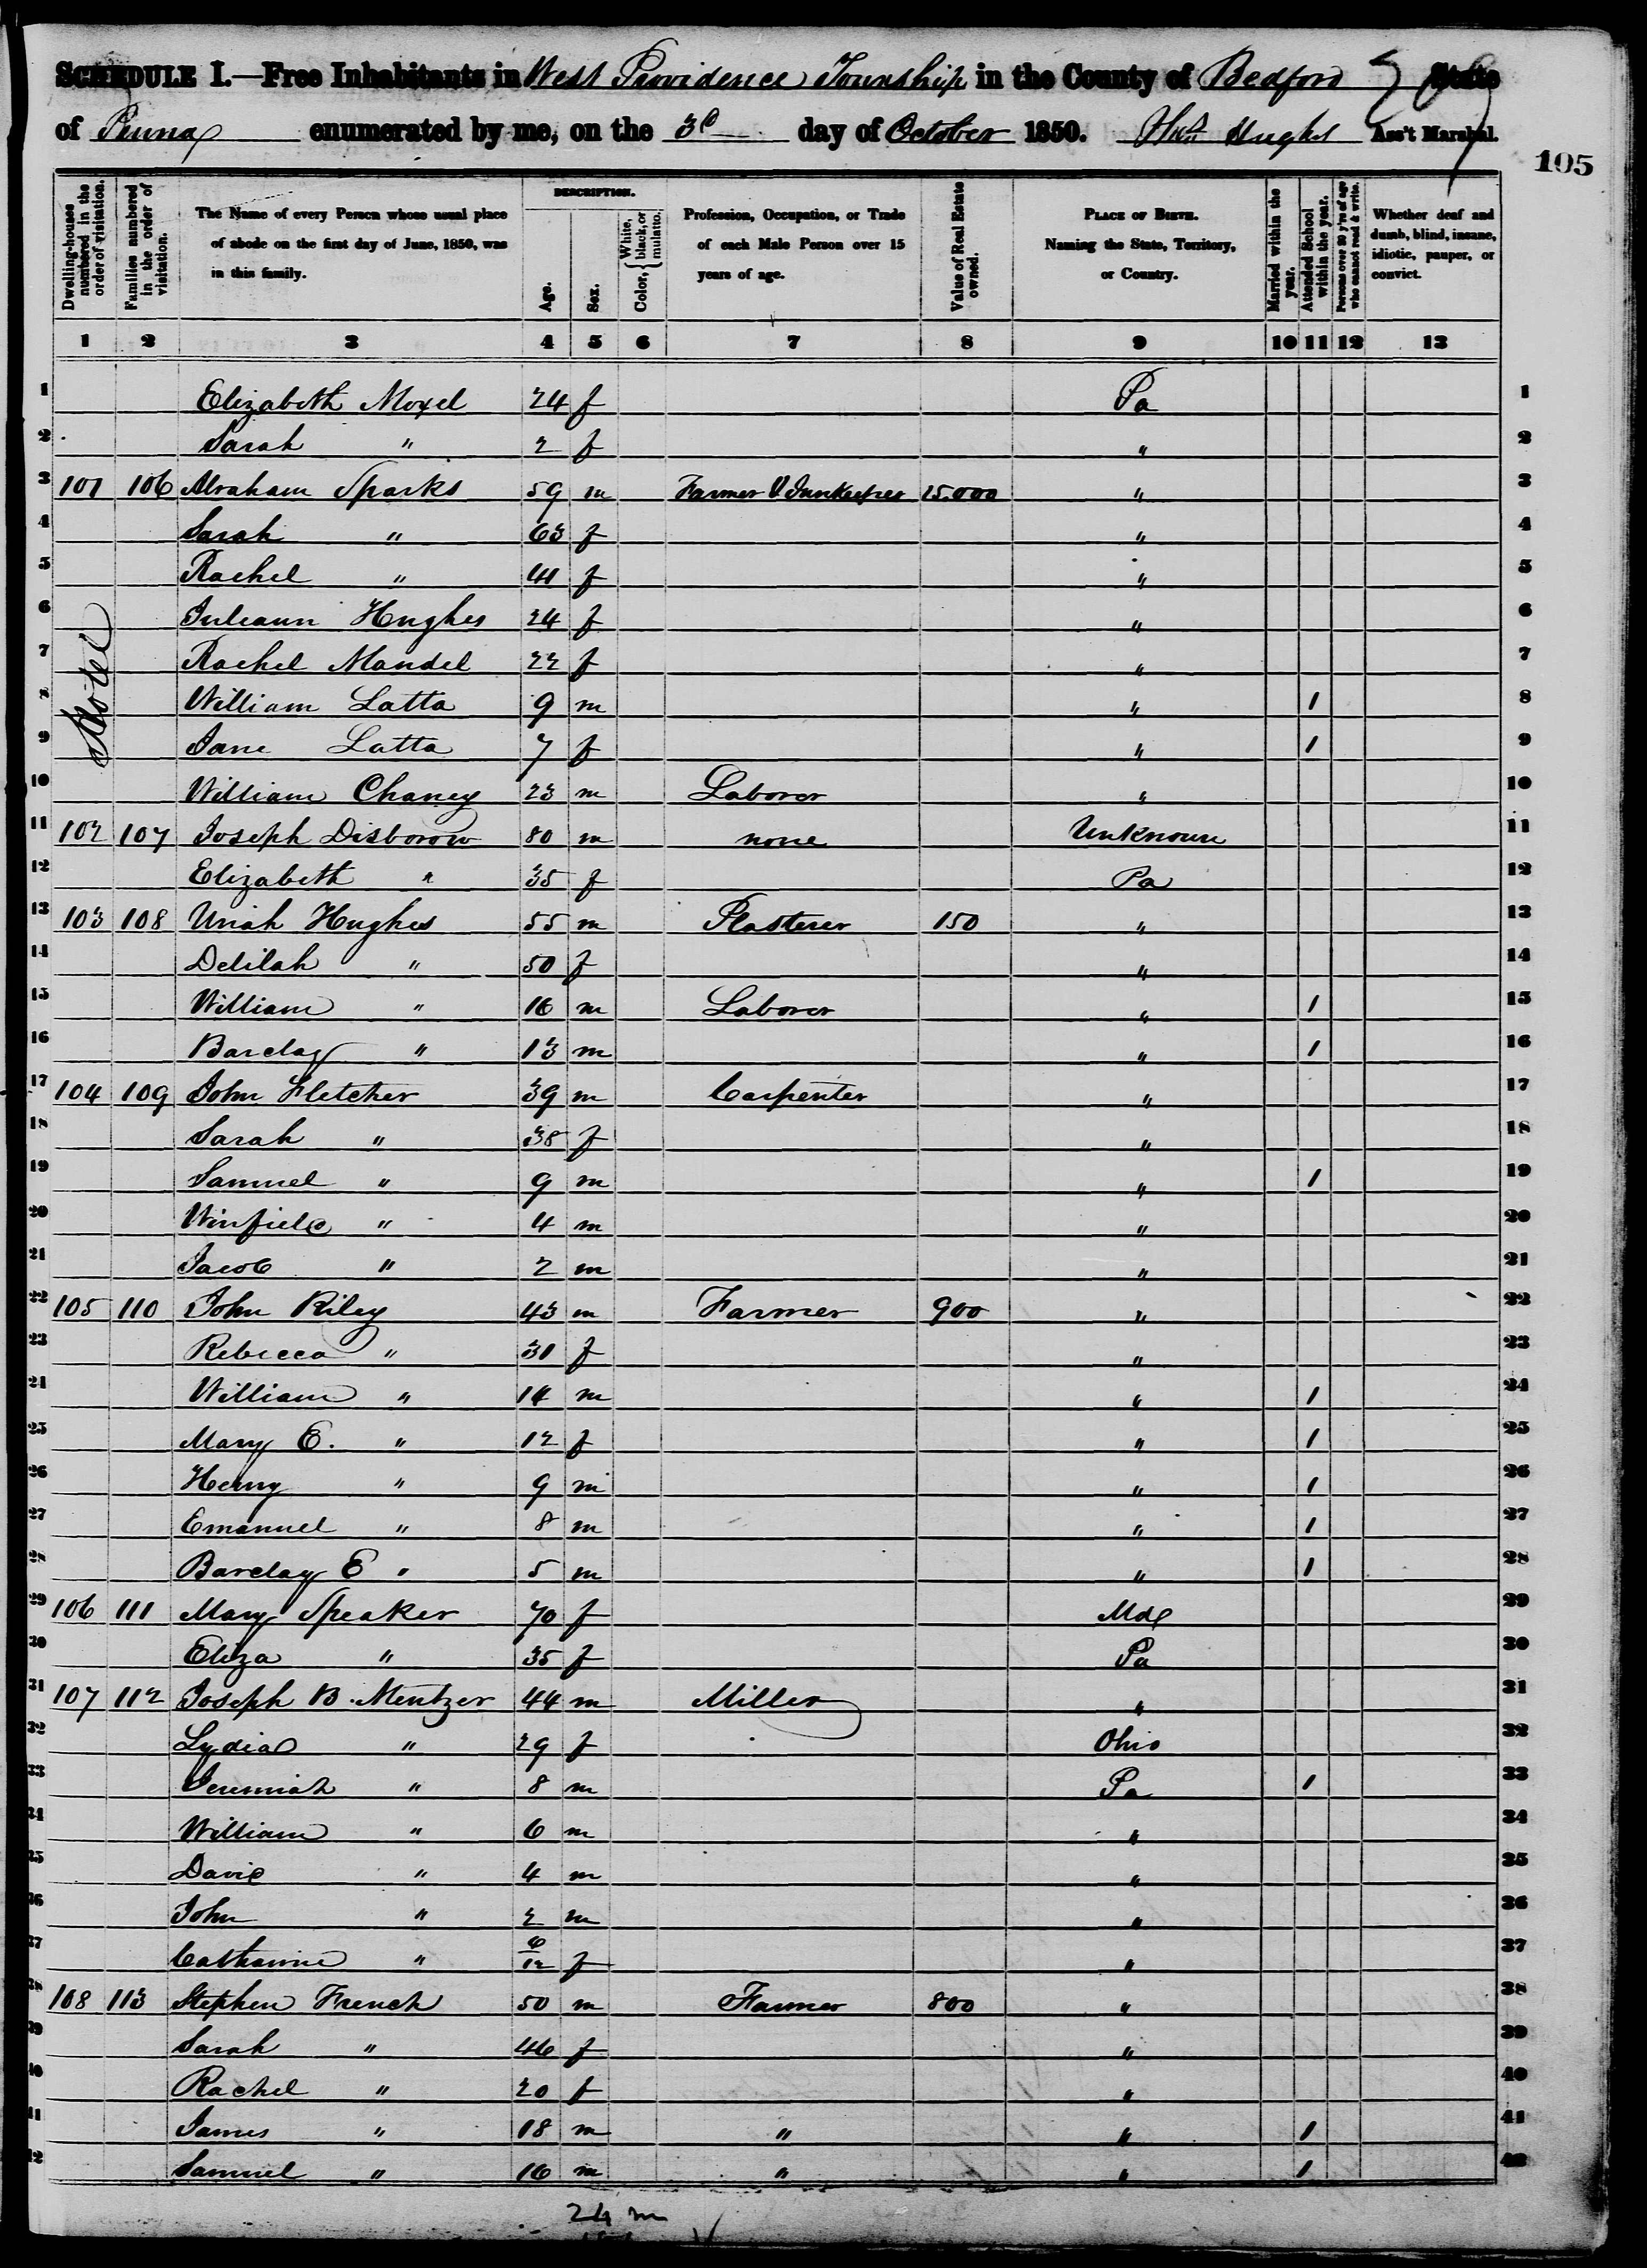 SCHEDULE I.—Free Inhabitants in West Providence Township in the County of Bedford State
of Penna enumerated by me, on the 3d day of October 1850. Wm Hughes Ass't Marshal.
105
Dwelling-houses numbered in the order of visitation.
Families numbered in the order of visitation.
The Name of every Person whose usual place of abode on the first day of June, 1850, was in this family.
DESCRIPTION.
Age.
Sex.
Color, { White, black, or mulatto.
Profession, Occupation, or Trade of each Male Person over 15 years of age.
Value of Real Estate owned.
PLACE OF BIRTH. Naming the State, Territory, or Country.
Married within the year.
Attended School within the year.
Persons over 20 y'rs of age who cannot read & write.
Whether deaf and dumb, blind, insane, idiotic, pauper, or convict.
1 2 3 4 5 6 7 8 9 10 11 12 13
1 Elizabeth Moxel 24 f Pa 1
2 Sarah " 2 f " 2
3 101 106 Abraham Sparks 59 m Farmer & Innkeeper 15.000 " 3
4 Sarah " 63 f " 4
5 Rachel " 41 f " 5
6 Juleann Hughes 24 f " 6
7 Rachel Mandel 22 f " 7
Hotel
8 William Latta 9 m " 1 8
9 Jane Latta 7 f " 1 9
10 William Chaney 23 m Laborer " 10
11 102 107 Joseph Disborow 80 m none Unknown 11
12 Elizabeth " 35 f Pa 12
13 103 108 Uriah Hughes 55 m Plasterer 150 " 13
14 Delilah " 50 f " 14
15 William " 16 m Laborer " 1 15
16 Barclay " 13 m " 1 16
17 104 109 John Fletcher 39 m Carpenter " 17
18 Sarah " 38 f " 18
19 Samuel " 9 m " 1 19
20 Winfield " 4 m " 20
21 Jacob " 2 m " 21
22 105 110 John Riley 43 m Farmer 900 " 22
23 Rebecca " 31 f " 23
24 William " 14 m " 1 24
25 Mary E. " 12 f " 1 25
26 Henry " 9 m " 1 26
27 Emanuel " 8 m " 1 27
28 Barclay E " 5 m " 1 28
29 106 111 Mary Speaker 70 f Md 29
30 Eliza " 35 f Pa 30
31 107 112 Joseph B. Mentzer 44 m Miller " 31
32 Lydia " 29 f Ohio 32
33 Jeremiah " 8 m Pa 1 33
34 William " 6 m " 34
35 David " 4 m " 35
36 John " 2 m " 36
37 Catharine " 6/12 f " 37
38 108 113 Stephen French 50 m Farmer 800 " 38
39 Sarah " 46 f " 39
40 Rachel " 20 f " 40
41 James " 18 m " " 1 41
42 Samuel " 16 m " " 1 42
24 m